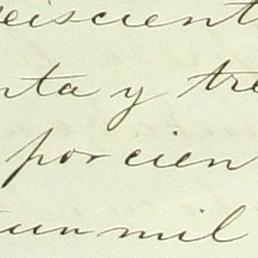 seiscient
nta y tre
por cien
un mil